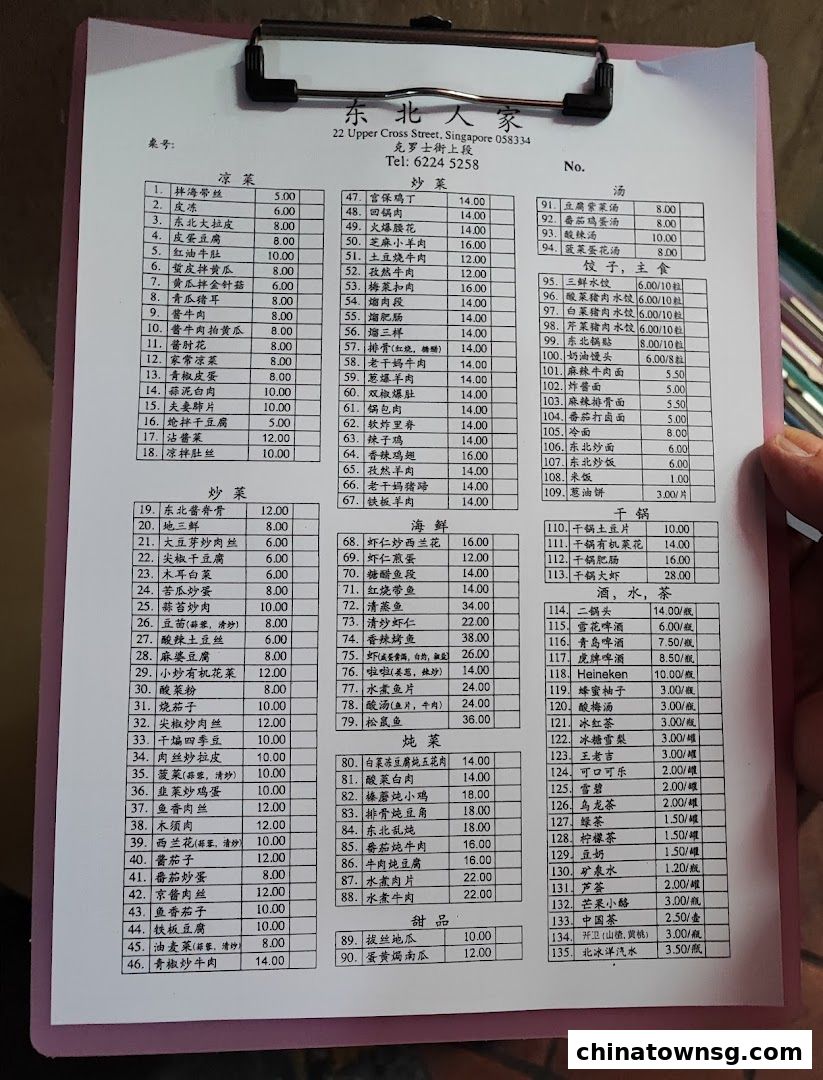 东北人家
22 Upper Cross Street, Singapore 058334
克罗士街上段
Tel: 6224 5258
桌号:
No.
凉菜
1. 拌海带丝 5.00
2. 皮冻 6.00
3. 东北大拉皮 8.00
4. 皮蛋豆腐 8.00
5. 红油牛肚 10.00
6. 蜇皮拌黄瓜 8.00
7. 黄瓜拌金针菇 6.00
8. 青瓜猪耳 8.00
9. 酱牛肉 8.00
10. 酱牛肉拍黄瓜 8.00
11. 酱肘花 8.00
12. 家常凉菜 8.00
13. 青椒皮蛋 8.00
14. 蒜泥白肉 10.00
15. 夫妻肺片 10.00
16. 炝拌干豆腐 5.00
17. 沾酱菜 12.00
18. 凉拌肚丝 10.00
炒菜
19. 东北酱脊骨 12.00
20. 地三鲜 8.00
21. 大豆芽炒肉丝 6.00
22. 尖椒干豆腐 6.00
23. 木耳白菜 6.00
24. 苦瓜炒蛋 8.00
25. 蒜苔炒肉 10.00
26. 豆苗(蒜蓉，清炒) 8.00
27. 酸辣土豆丝 6.00
28. 麻婆豆腐 8.00
29. 小炒有机花菜 12.00
30. 酸菜粉 8.00
31. 烧茄子 10.00
32. 尖椒炒肉丝 12.00
33. 干煸四季豆 10.00
34. 肉丝炒拉皮 10.00
35. 菠菜(蒜蓉，清炒) 10.00
36. 韭菜炒鸡蛋 10.00
37. 鱼香肉丝 12.00
38. 木须肉 12.00
39. 西兰花(蒜蓉，清炒) 10.00
40. 酱茄子 12.00
41. 番茄炒蛋 8.00
42. 京酱肉丝 12.00
43. 鱼香茄子 10.00
44. 铁板豆腐 10.00
45. 油麦菜(蒜蓉，清炒) 8.00
46. 青椒炒牛肉 14.00
炒菜
47. 宫保鸡丁 14.00
48. 回锅肉 14.00
49. 火爆腰花 14.00
50. 芝麻小羊肉 16.00
51. 土豆烧牛肉 12.00
52. 孜然牛肉 12.00
53. 梅菜扣肉 16.00
54. 熘肉段 14.00
55. 熘肥肠 14.00
56. 熘三样 14.00
57. 排骨(红烧，糖醋) 14.00
58. 老干妈牛肉 14.00
59. 葱爆羊肉 14.00
60. 双椒爆肚 14.00
61. 锅包肉 14.00
62. 软炸里脊 14.00
63. 辣子鸡 14.00
64. 香辣鸡翅 16.00
65. 孜然羊肉 14.00
66. 老干妈猪蹄 14.00
67. 铁板羊肉 14.00
海鲜
68. 虾仁炒西兰花 16.00
69. 虾仁煎蛋 12.00
70. 糖醋鱼段 14.00
71. 红烧带鱼 14.00
72. 清蒸鱼 34.00
73. 清炒虾仁 22.00
74. 香辣烤鱼 38.00
75. 虾(咸蛋黄酒，白灼，椒盐) 26.00
76. 啦啦(姜葱，辣炒) 14.00
77. 水煮鱼片 24.00
78. 酸汤(鱼片，牛肉) 24.00
79. 松鼠鱼 36.00
炖菜
80. 白菜冻豆腐炖五花肉 14.00
81. 酸菜白肉 14.00
82. 榛蘑炖小鸡 18.00
83. 排骨炖豆角 18.00
84. 东北乱炖 18.00
85. 番茄炖牛肉 16.00
86. 牛肉炖豆腐 16.00
87. 水煮肉片 22.00
88. 水煮牛肉 22.00
甜品
89. 拔丝地瓜 10.00
90. 蛋黄焗南瓜 12.00
汤
91. 豆腐紫菜汤 8.00
92. 番茄鸡蛋汤 8.00
93. 酸辣汤 10.00
94. 菠菜蛋花汤 8.00
饺子，主食
95. 三鲜水饺 6.00/10粒
96. 酸菜猪肉水饺 6.00/10粒
97. 白菜猪肉水饺 6.00/10粒
98. 芹菜猪肉水饺 6.00/10粒
99. 东北锅贴 8.00/10粒
100. 奶油馒头 6.00/8粒
101. 麻辣牛肉面 5.50
102. 炸酱面 5.00
103. 麻辣排骨面 5.50
104. 番茄打卤面 5.00
105. 冷面 8.00
106. 东北炒面 6.00
107. 东北炒饭 6.00
108. 米饭 1.00
109. 葱油饼 3.00/片
干锅
110. 干锅土豆片 10.00
111. 干锅有机菜花 14.00
112. 干锅肥肠 16.00
113. 干锅大虾 28.00
酒，水，茶
114. 二锅头 14.00/瓶
115. 雪花啤酒 6.00/瓶
116. 青岛啤酒 7.50/瓶
117. 虎牌啤酒 8.50/瓶
118. Heineken 10.00/瓶
119. 蜂蜜柚子 3.00/瓶
120. 酸梅汤 3.00/瓶
121. 冰红茶 3.00/瓶
122. 冰糖雪梨 3.00/瓶
123. 王老吉 3.00/罐
124. 可口可乐 2.00/罐
125. 雪碧 2.00/罐
126. 乌龙茶 2.00/罐
127. 绿茶 1.50/罐
128. 柠檬茶 1.50/罐
129. 豆奶 1.50/罐
130. 矿泉水 1.20/瓶
131. 芦荟 2.00/罐
132. 芒果小酪 3.00/瓶
133. 中国茶 2.50/壶
134. 开卫(山楂，黄桃) 3.00/瓶
135. 北冰洋汽水 3.50/瓶
chinatownsg.com